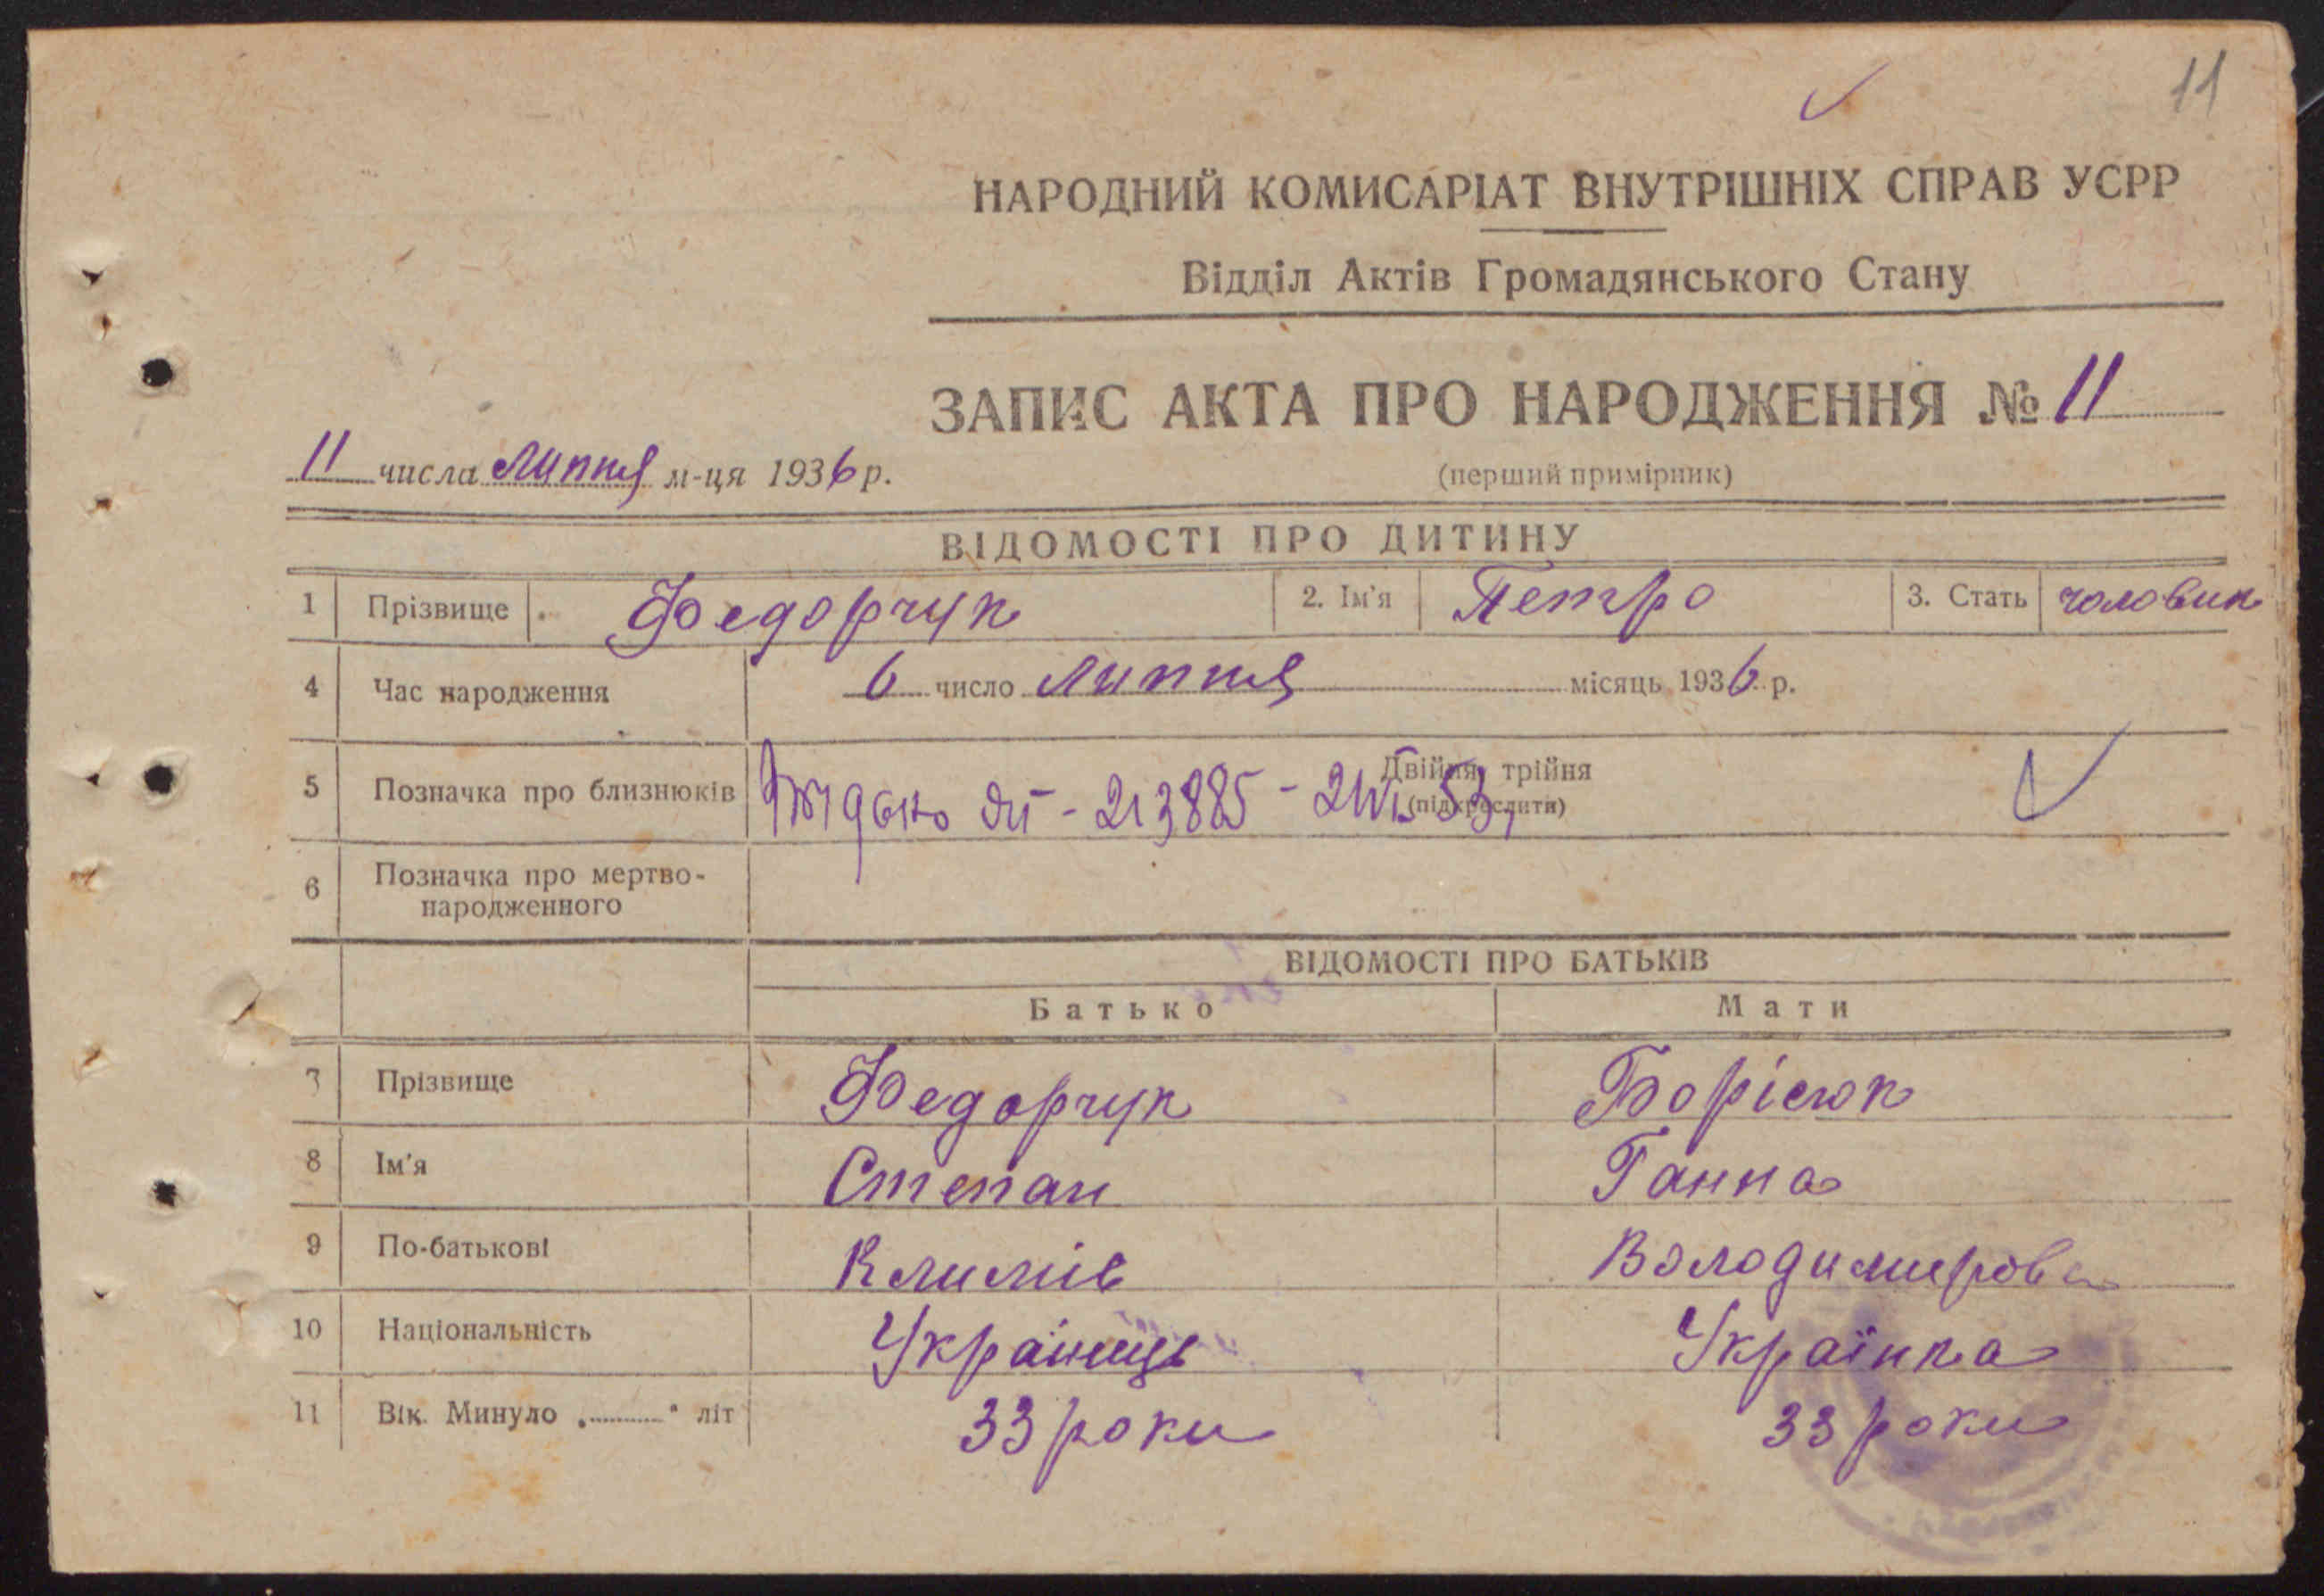 11
НАРОДНИЙ КОМИСАРІАТ ВНУТРІШНІХ СПРАВ УСРР
Відділ Актів Громадянського Стану
ЗАПИС АКТА ПРО НАРОДЖЕННЯ № 11
11 числа Липня м-ця 1936 р.
(перший примірник)
ВІДОМОСТІ ПРО ДИТИНУ
1 Прізвище Федорчук 2. Ім'я Петро 3. Стать чоловик
4 Час народження 6 число Липня місяць 1936 р.
5 Позначка про близнюків Двійня, трійня
(підкреслити)
213885 - 53
6 Позначка про мертво-
народженного
ВІДОМОСТІ ПРО БАТЬКІВ
Батько Мати
7 Прізвище Федорчук Борісюк
8 Ім'я Степан Ганна
9 По-батькові Климів Володимирова
10 Національність Українець Українка
11 Вік. Минуло „..........“ літ 33 роки 33 роки